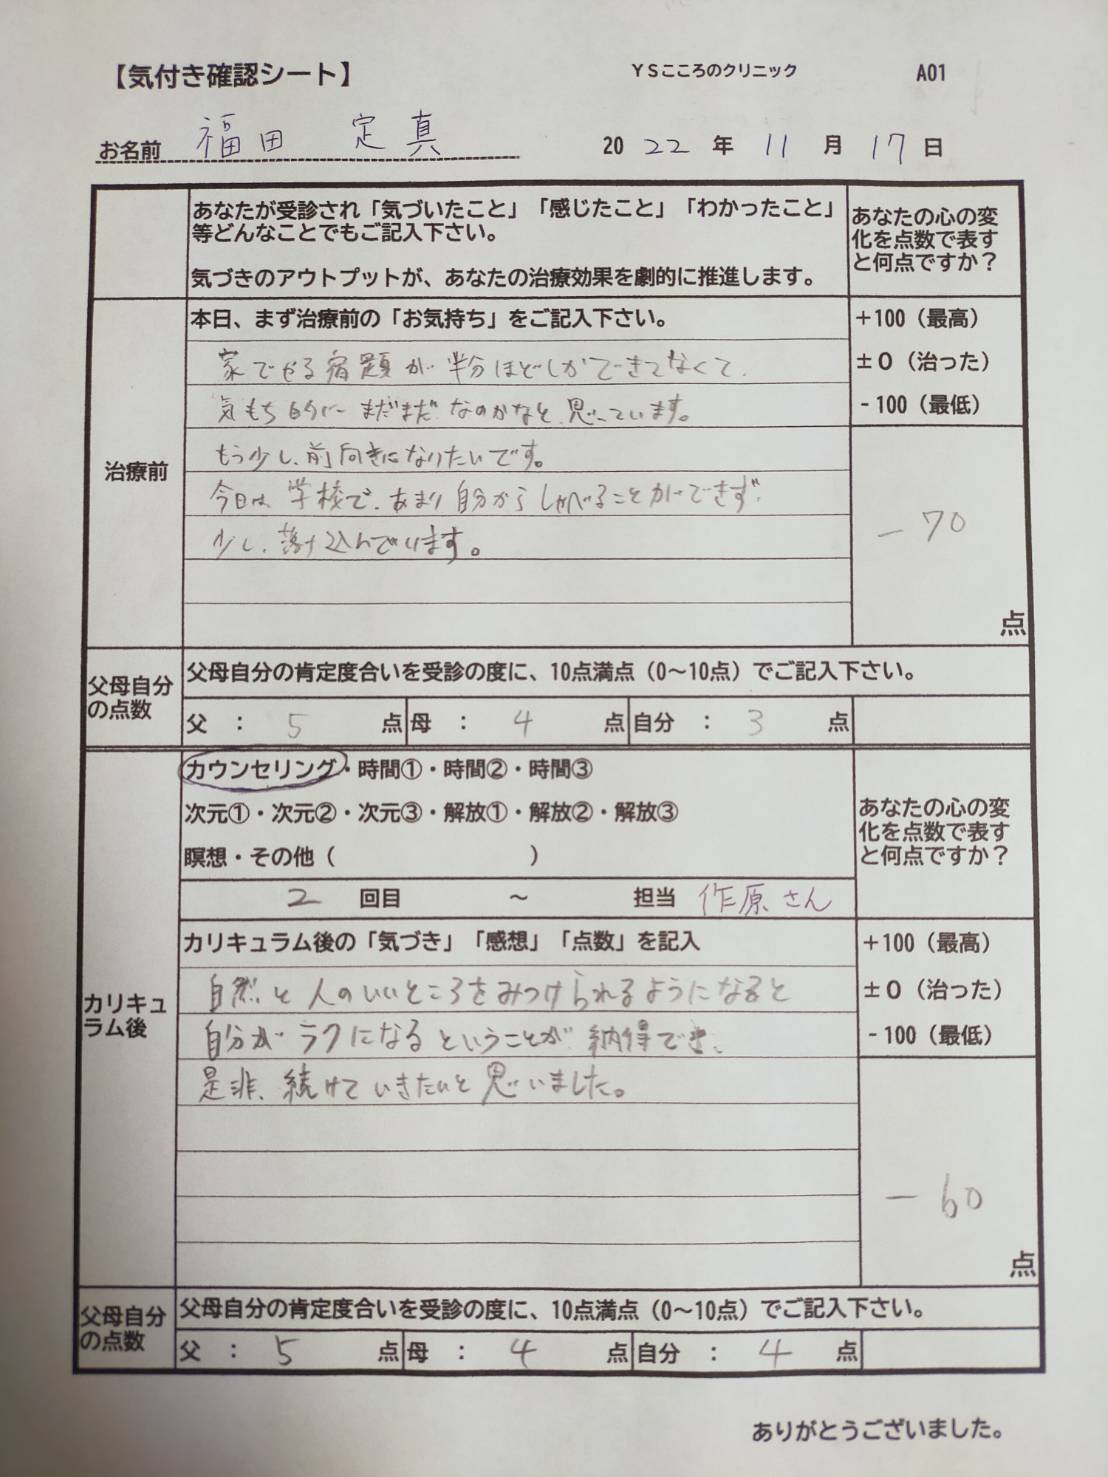 【気付き確認シート】 YSこころのクリニック A01
お名前 福田 定真 2022年11月17日
あなたが受診され「気づいたこと」「感じたこと」「わかったこと」
等どんなことでもご記入下さい。
気づきのアウトプットが、あなたの治療効果を劇的に推進します。
あなたの心の変
化を点数で表す
と何点ですか？
治療前
本日、まず治療前の「お気持ち」をご記入下さい。
家でやる宿題が半分ほどしかできてなくて、
気もち的にまだまだなのかなと、思っています。
もう少し、前向きになりたいです。
今日は、学校で、あまり自分からしゃべることができず、
少し、落ち込んでいます。
+100（最高）
±0（治った）
-100（最低）
-70
点
父母自分
の点数
父母自分の肯定度合いを受診の度に、10点満点（0〜10点）でご記入下さい。
父：5点 母：4点 自分：3点
カリキュ
ラム後
カウンセリング・時間①・時間②・時間③
次元①・次元②・次元③・解放①・解放②・解放③
瞑想・その他（ ）
2回目 〜 担当 作原さん
あなたの心の変
化を点数で表す
と何点ですか？
カリキュラム後の「気づき」「感想」「点数」を記入
自然と人のいいところをみつけられるようになると
自分がラクになるということが納得でき、
是非、続けていきたいと思いました。
+100（最高）
±0（治った）
-100（最低）
-60
点
父母自分
の点数
父母自分の肯定度合いを受診の度に、10点満点（0〜10点）でご記入下さい。
父：5点 母：4点 自分：4点
ありがとうございました。